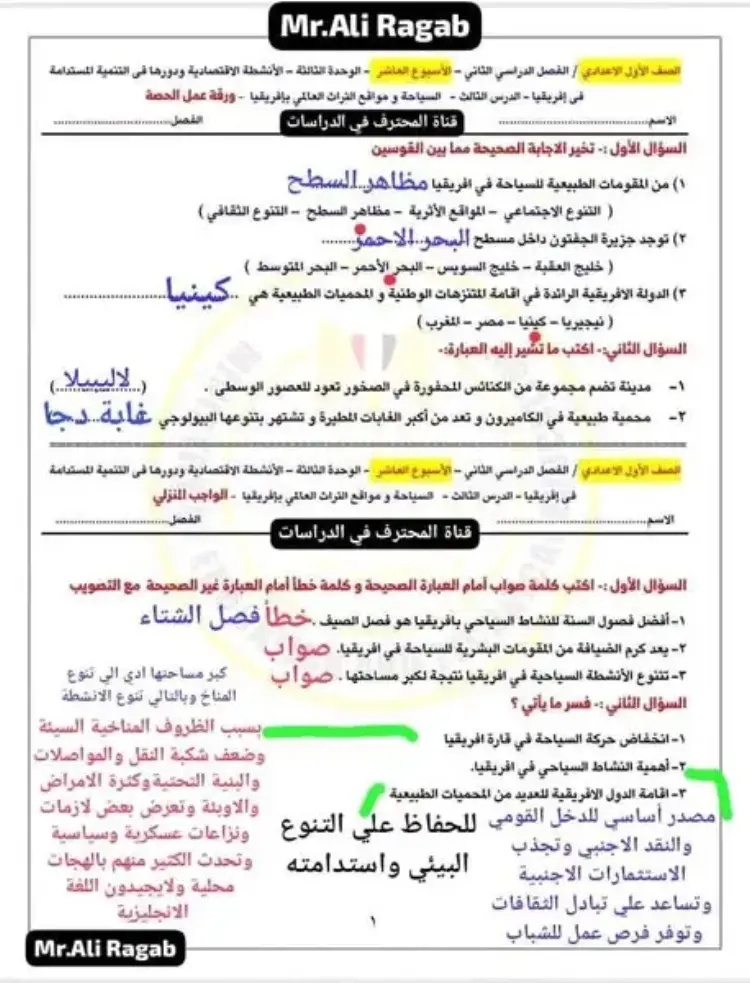 Mr.Ali Ragab
الصف الأول الاعدادي / الفصل الدراسي الثاني – الأسبوع العاشر – الوحدة الثالثة – الأنشطة الاقتصادية ودورها فى التنمية المستدامة
فى إفريقيا – الدرس الثالث - السياحة و مواقع التراث العالمي بإفريقيا - ورقة عمل الحصة
الاسم........................ قناة المحترف في الدراسات الفصل........................
السؤال الأول :- تخير الاجابة الصحيحة مما بين القوسين
١) من المقومات الطبيعية للسياحة في افريقيا مظاهر السطح
( التنوع الاجتماعي – المواقع الأثرية – مظاهر السطح – التنوع الثقافي )
٢) توجد جزيرة الجفتون داخل مسطح البحر الاحمر
( خليج العقبة – خليج السويس – البحر الأحمر – البحر المتوسط )
٣) الدولة الافريقية الرائدة في اقامة المتنزهات الوطنية و المحميات الطبيعية هي كينيا
( نيجيريا – كينيا – مصر – المغرب )
السؤال الثاني:- اكتب ما تشير إليه العبارة:-
١- مدينة تضم مجموعة من الكنائس المحفورة في الصخور تعود للعصور الوسطى . (لاليبيلا)
٢- محمية طبيعية في الكاميرون و تعد من أكبر الغابات المطيرة و تشتهر بتنوعها البيولوجي غابة دجا
الصف الأول الاعدادي / الفصل الدراسي الثاني – الأسبوع العاشر – الوحدة الثالثة – الأنشطة الاقتصادية ودورها فى التنمية المستدامة
فى إفريقيا – الدرس الثالث - السياحة و مواقع التراث العالمي بإفريقيا - الواجب المنزلي
الاسم........................ قناة المحترف في الدراسات الفصل........................
السؤال الأول :- اكتب كلمة صواب أمام العبارة الصحيحة و كلمة خطأ أمام العبارة غير الصحيحة مع التصويب
١- أفضل فصول السنة للنشاط السياحي بافريقيا هو فصل الصيف . خطأ فصل الشتاء
٢- يعد كرم الضيافة من المقومات البشرية للسياحة في افريقيا. صواب
٣- تتنوع الأنشطة السياحية في افريقيا نتيجة لكبر مساحتها . صواب
كبر مساحتها ادي الي تنوع
المناخ وبالتالي تنوع الانشطة
السؤال الثاني :- فسر ما يأتي ؟
١- انخفاض حركة السياحة في قارة افريقيا
بسبب الظروف المناخية السيئة
وضعف شكبة النقل والمواصلات
والبنية التحتية وكثرة الامراض
والاوبئة وتعرض بعض لازمات
ونزاعات عسكرية وسياسية
وتحدث الكثير منهم بالهجات
محلية ولايجيدون اللغة
الانجليزية
٢- أهمية النشاط السياحي في افريقيا.
مصدر أساسي للدخل القومي
والنقد الاجنبي وتجذب
الاستثمارات الاجنبية
وتساعد علي تبادل الثقافات
وتوفر فرص عمل للشباب
٣- اقامة الدول الافريقية للعديد من المحميات الطبيعية
للحفاظ علي التنوع
البيئي واستدامته
١
Mr.Ali Ragab